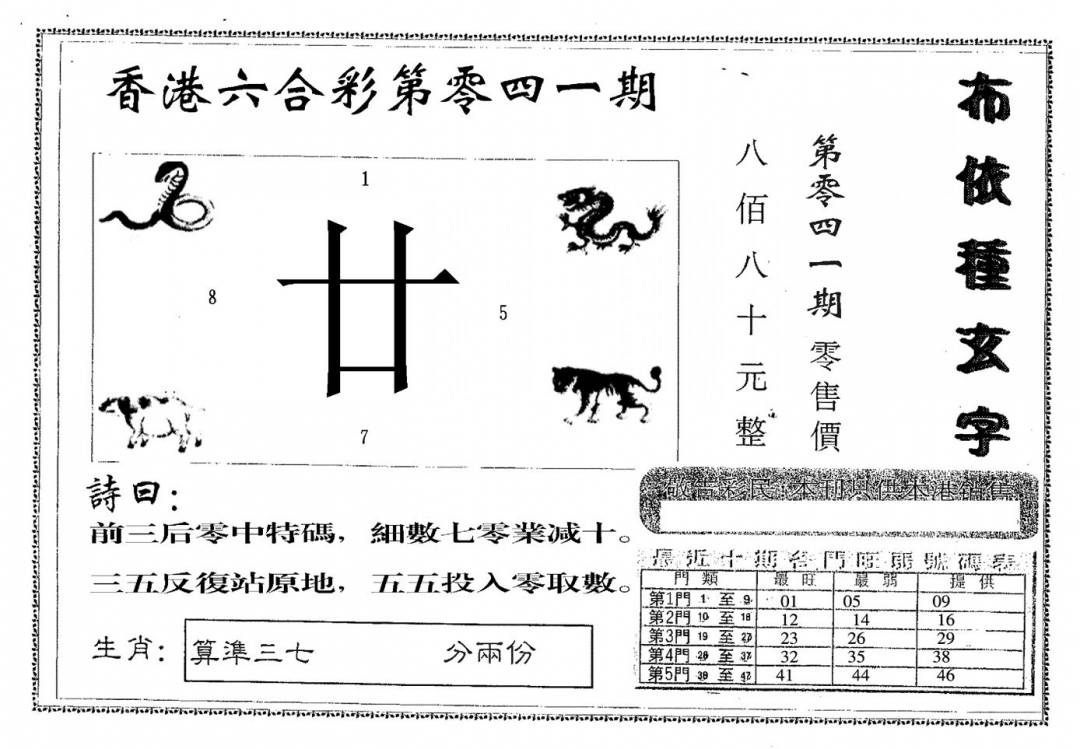 香港六合彩第零四一期
布依種玄字
第零四一期零售價
八佰八十元整
1
廿
8
5
7
詩曰:
前三后零中特碼, 細數七零業减十。
三五反復站原地, 五五投入零取數。
生肖: 算準三七 分兩份
敬告彩民:本刊只供本港銷售
最近十期各門旺弱號碼表
門類 最旺 最弱 提供
第1門 1 至 9 01 05 09
第2門 10 至 18 12 14 16
第3門 19 至 27 23 26 29
第4門 28 至 37 32 35 38
第5門 38 至 47 41 44 46